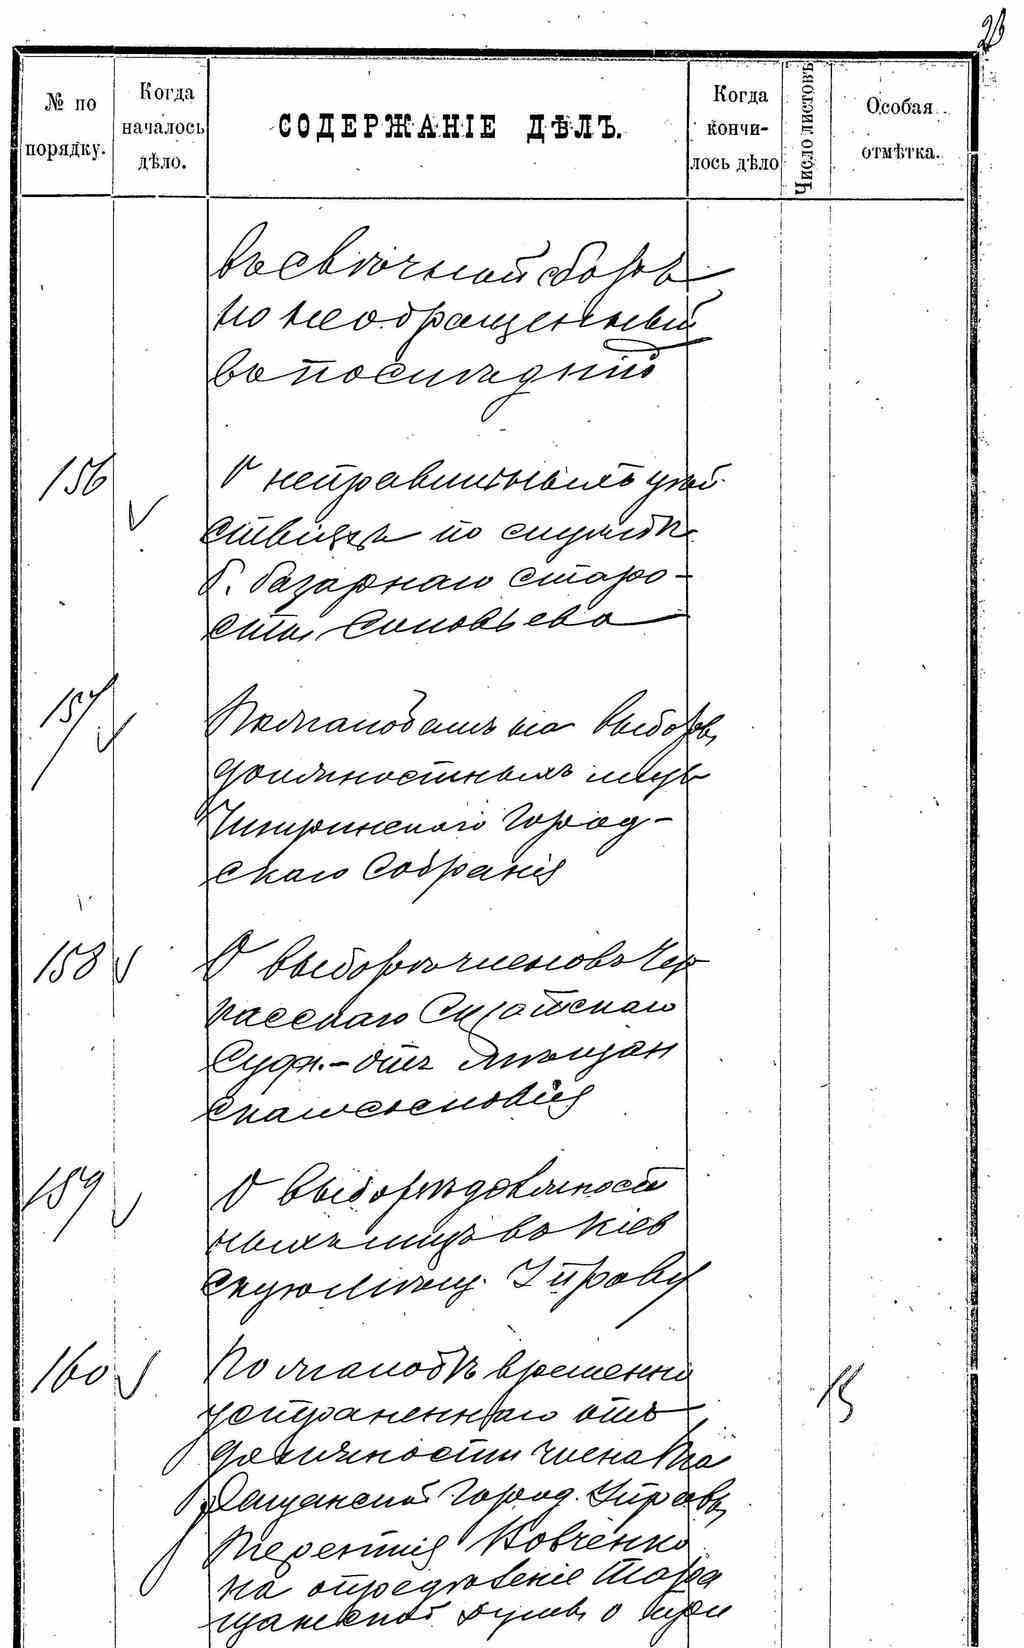 23
№ по порядку.
Когда началось дѣло.
СОДЕРЖАНІЕ ДѢЛЪ.
Когда кончилось дѣло
Число листовъ
Особая отмѣтка.
въ свѣчной сборъ
но не обращенный
въ послѣдній
156
О неправильныхъ дѣй-
ствіяхъ по службѣ
б. базарнаго старо-
сты Соловьева
157
По жалобамъ на выборы
должностныхъ лицъ
Чигиринскаго Город-
скаго Собранія
158
О выборѣ членовъ Чер
касскаго Сиротскаго
Суда.- отъ мѣщан
скаго сословія
159
О выборѣ должност
ныхъ лицъ въ Кіев
скую Мѣщ. Управу
160
По жалобѣ временно
устраненнаго отъ
должности члена Та
ращанской Город. Управы
Терентія Ковченко
на опредѣленіе Тара
щанской Думы о при